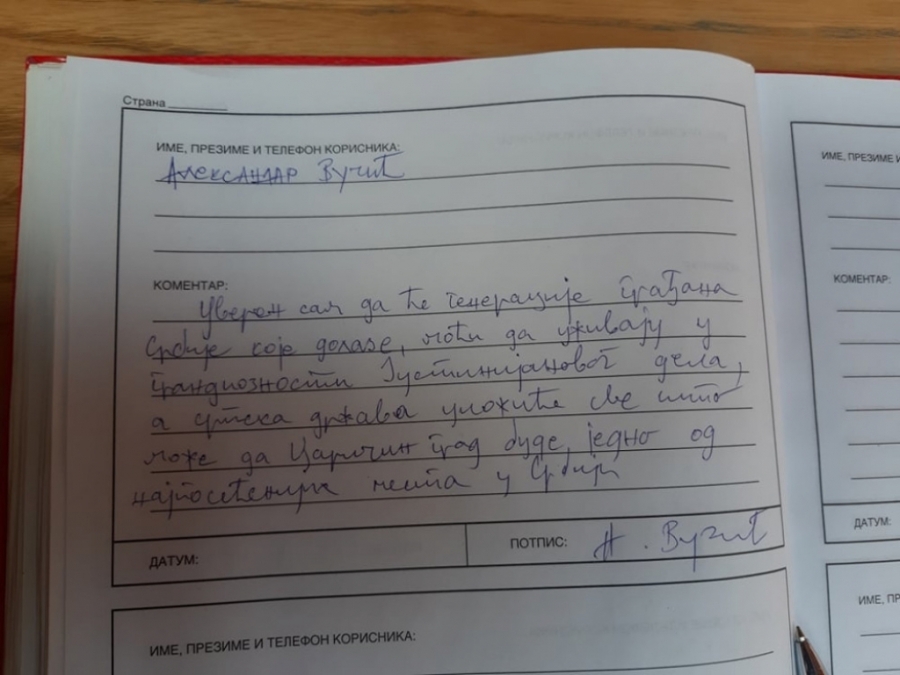 Страна
ИМЕ, ПРЕЗИМЕ И ТЕЛЕФОН КОРИСНИКА:
Александар Вучић
КОМЕНТАР:
Уверен сам да ће генерације грађана
Србије које долазе, моћи да уживају у
грандиозности Јустинијановог дела,
а српска држава уложиће све што
може да Царичин град буде једно од
најпосећенијих места у Србији
ДАТУМ:
ПОТПИС: А. Вучић
ИМЕ, ПРЕЗИМЕ И ТЕЛЕФОН КОРИСНИКА:
ИМЕ, ПРЕЗИМЕ И
КОМЕНТАР:
ДАТУМ:
ИМЕ, ПР